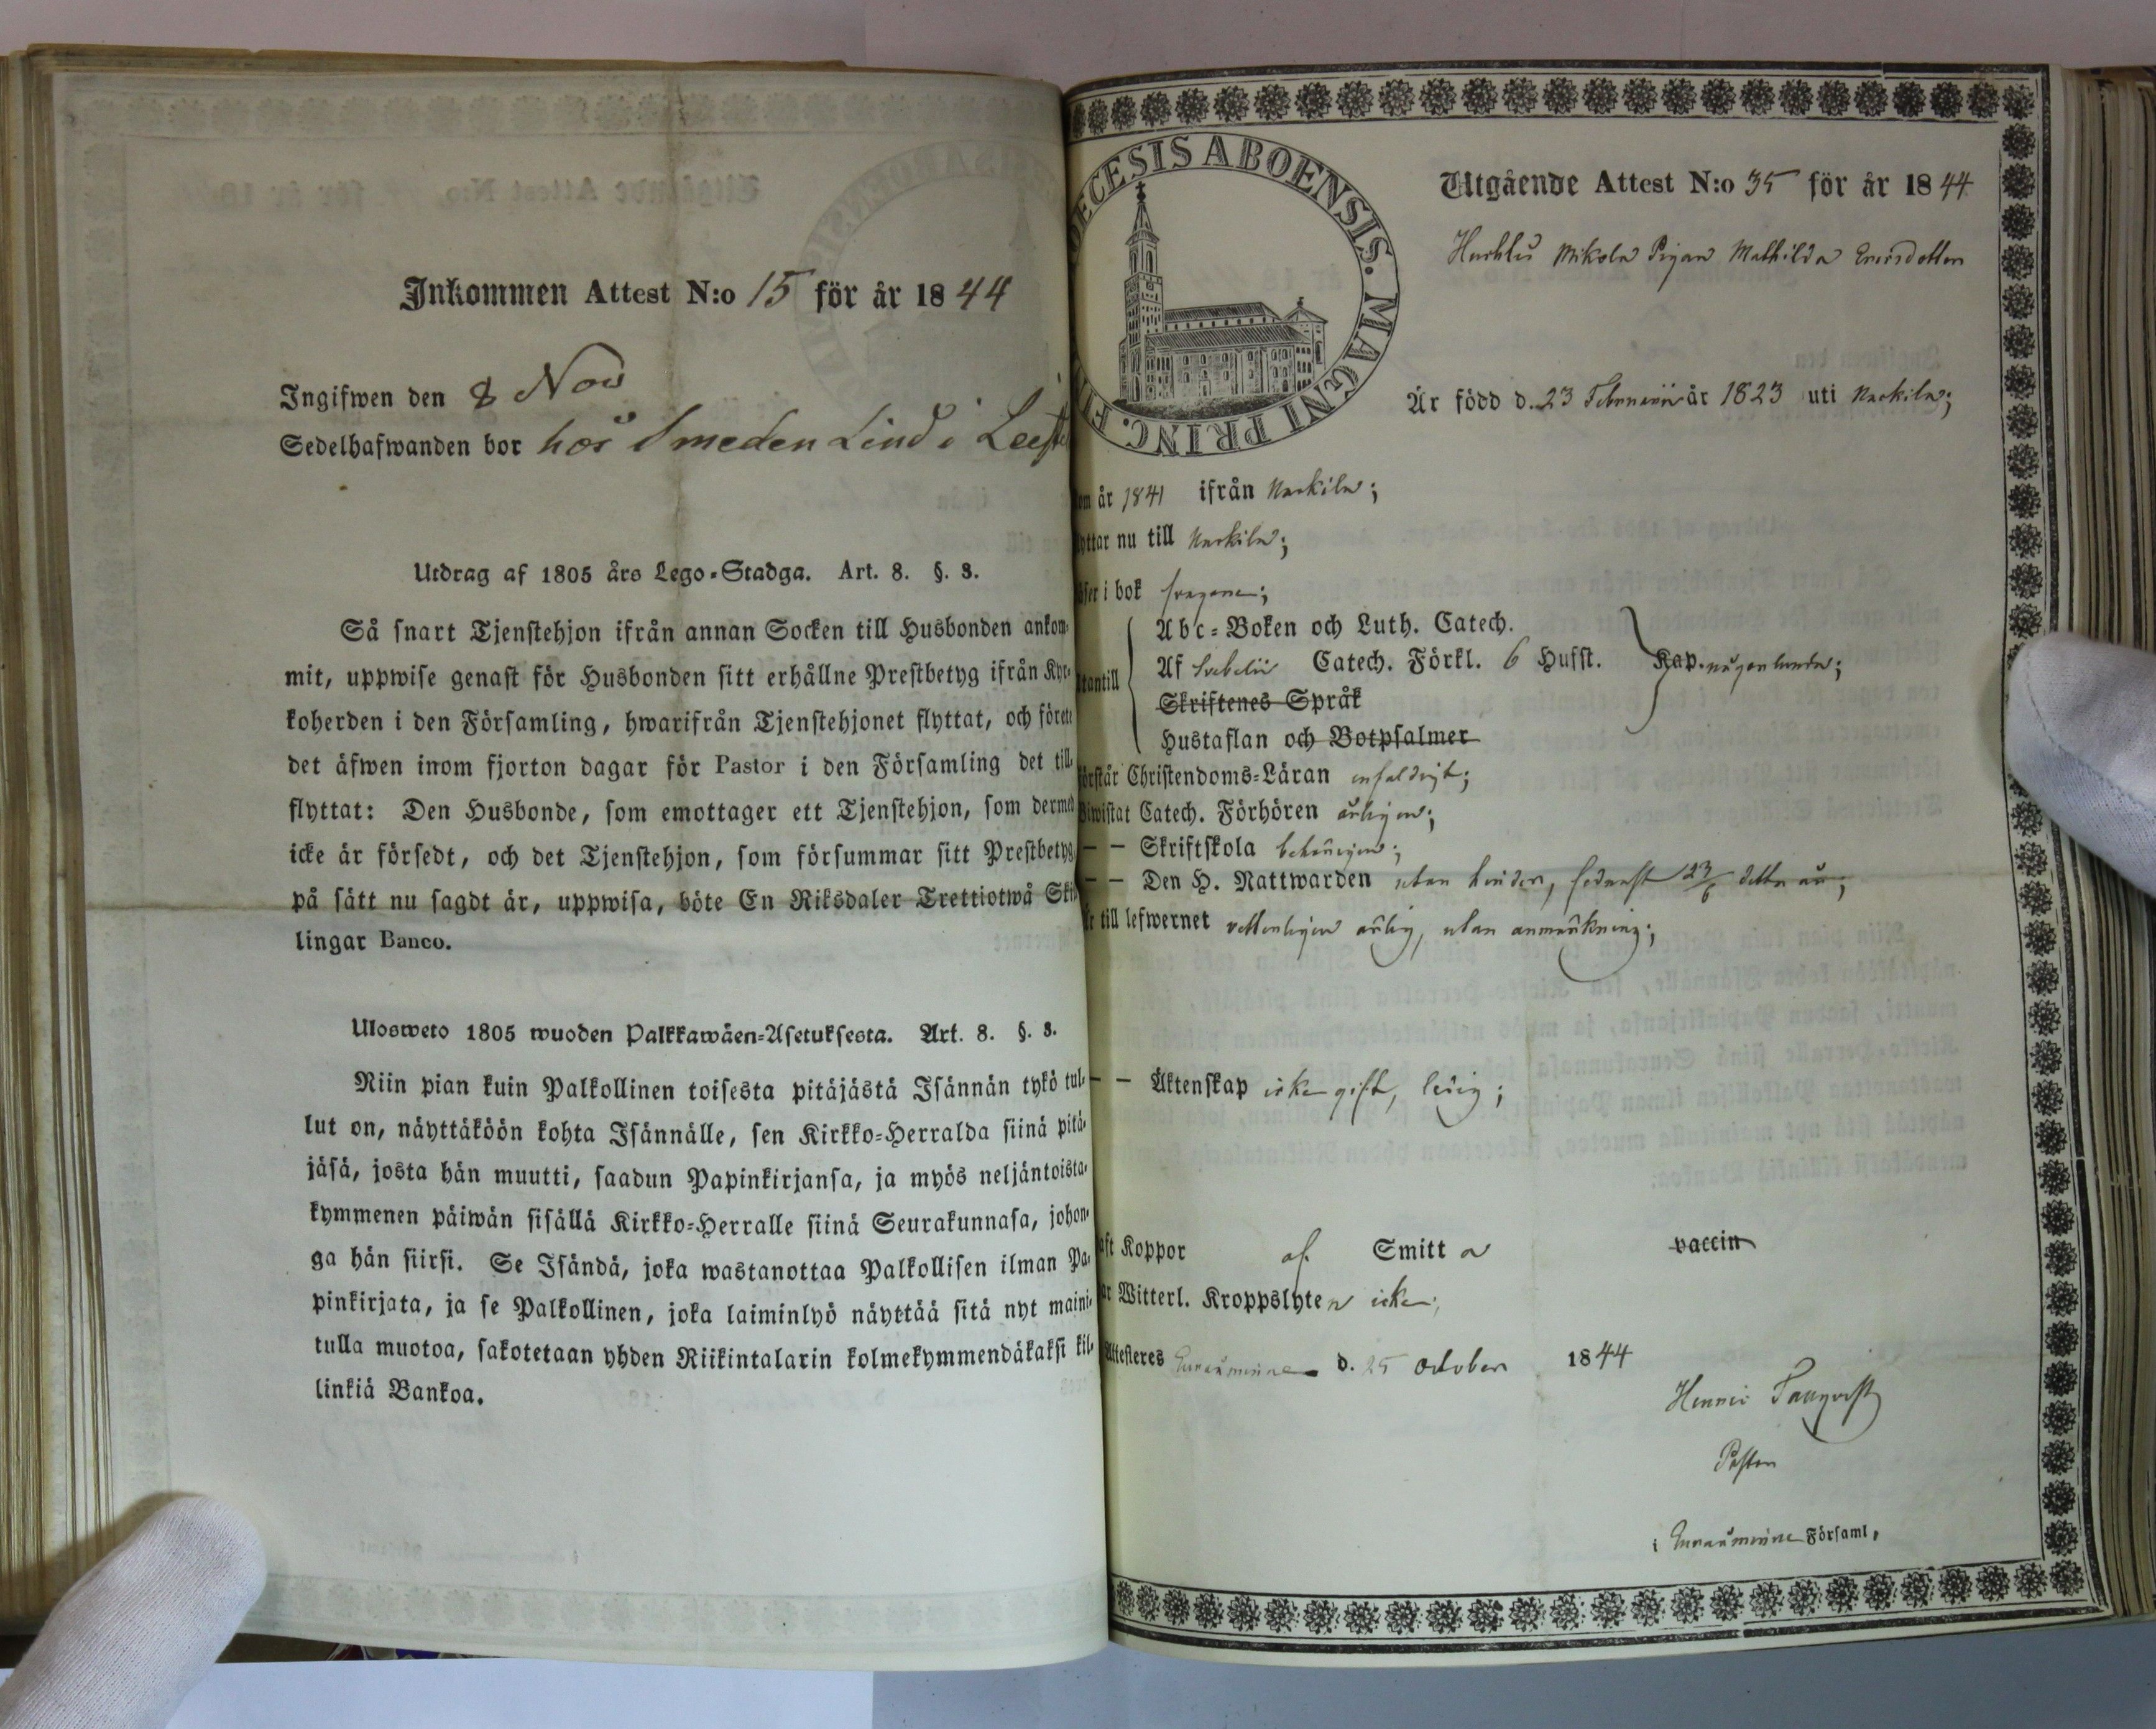 Inkommen Attest N:o 15 för år 1844
Ingifwen den 8 Nov
Sedelhafwanden bor hos Smeden Lind i
Utdrag af 1805 års Lego-Stadga. Art. 8. §. 8.
Så snart Tjenstehjon ifrån annan Socken till Husbonden ankom-
mit, uppwise genast för Husbonden sitt erhållne Prestbetyg ifrån Kyr-
koherden i den Församling, hwarifrån Tjenstehjonet flyttat, och förete
det äfwen inom fjorton dagar för Pastor i den Församling det till-
flyttat: Den Husbonde, som emottager ett Tjenstehjon, som dermed
icke är försedt, och det Tjenstehjon, som försummar sitt Prestbetyg
på sätt nu sagdt är, uppwisa, böte En Riksdaler Trettiotwå Skil
lingar Banco.
Ulosweto 1805 wuoden Palkkawäen-Asetuksesta. Art. 8. §. 8.
Niin pian kuin Palkollinen toisesta pitäjästä Isännän tykö tul-
lut on, näyttäköön kohta Isännälle, sen Kirkko-Herralda siinä pitä-
jäsä, josta hän muutti, saadun Papinkirjansa, ja myös neljäntoista-
kymmenen päiwän sisällä Kirkko-Herralle siinä Seurakunnasa, johon-
ga hän siirsi. Se Isändä, joka wastanottaa Palkollisen ilman Pa-
pinkirjata, ja se Palkollinen, joka laiminlyö näyttää sitä nyt maini-
tulla muotoa, sakotetaan yhden Riikintalarin kolmekymmendäkaksi kil-
linkiä Bankoa.
ECESIS ABOENSIS. MAGNI PRINC. FI
Utgående Attest N:o 35 för år 1844
Mikola Pigan Mathilda Ericsdotter
Är född d. 23 Februarii år 1823 uti Nackila;
om år 1841 ifrån Nackila;
yttar nu till Nackila;
äser i bok
Abc-Boken och Luth. Catech.
Af Svebelii Catech. Förkl. 6 Hufst. Kap. någorlunda;
tantill
Skriftenes Språk
Hustaflan och Botpsalmer
örstår Christendoms-Läran enfaldigt;
Biwistat Catech. Förhören årligen;
— — Skriftskola behörigen;
— — Den H. Nattwarden utan hinder, sednast 23/6 detta år;
r till lefwernet vetterligen ärlig, utan anmärkning;
— — Äktenskap icke gift, ledig;
aft Koppor af Smitta vaccin
ar Witterl. Kroppslyten icke;
Attesteres Euraåminne d. 25 October 1844
Henric
Pastor
i Euraåminne Församl,